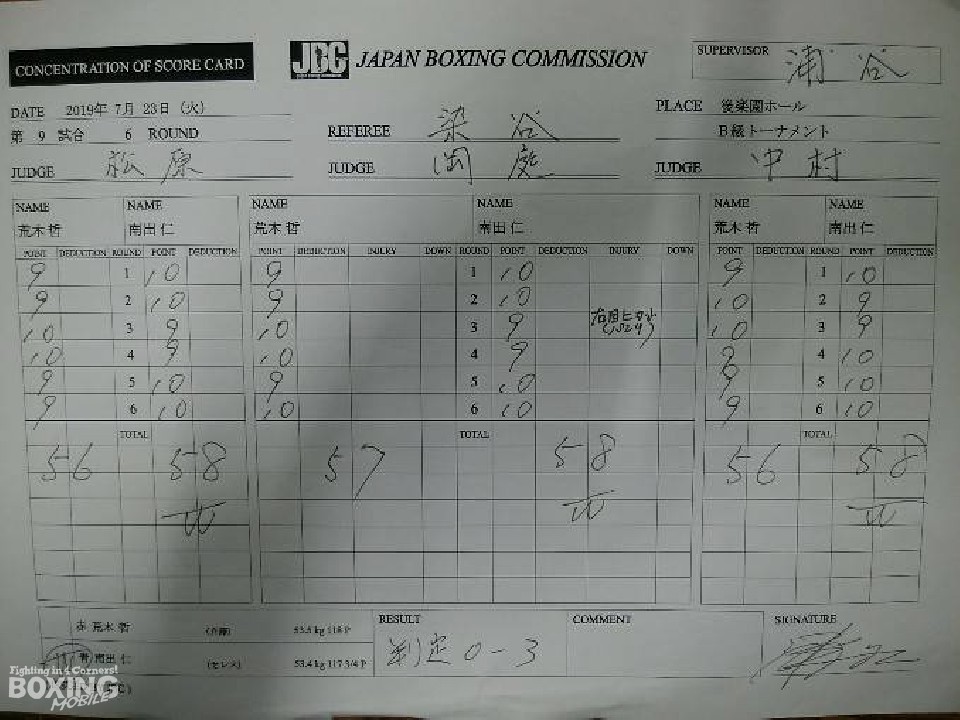 CONCENTRATION OF SCORE CARD
JBC JAPAN BOXING COMMISSION
SUPERVISOR 浦谷
DATE 2019年 7月 23日 (火)
PLACE 後楽園ホール
第 9 試合 6 ROUND
REFEREE 染谷
B級トーナメント
JUDGE 松原
JUDGE 岡庭
JUDGE 中村
NAME NAME NAME NAME NAME NAME
荒木 哲 南出 仁 荒木 哲 南出 仁 荒木 哲 南出 仁
POINT DEDUCTION ROUND POINT DEDUCTION POINT DEDUCTION INJURY DOWN ROUND POINT DEDUCTION INJURY DOWN POINT DEDUCTION ROUND POINT DEDUCTION
9 1 10 9 1 10 9 1 10
9 2 10 9 2 10 10 2 9
10 3 9 10 3 9 右眉ヒット 10 3 9
10 4 9 10 4 9 9 4 10
9 5 10 9 5 10 9 5 10
9 6 10 10 6 10 9 6 10
TOTAL TOTAL TOTAL
56 58 57 58 56 58
W W W
赤 荒木 哲 53.5 kg 118 P
RESULT
COMMENT
SIGNATURE
判定 0-3
W 青 南出 仁 (セレス) 53.4 kg 117-3/4 P
Fighting in 4 Corners!
BOXING
MOBILE